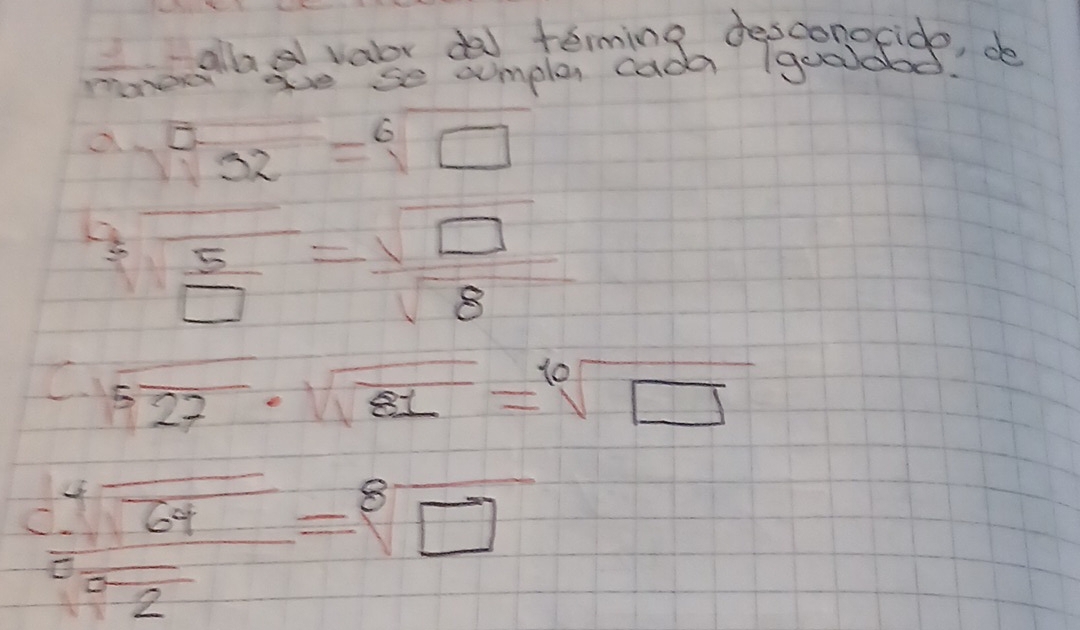 alla el valor del término desconocido, de
manera que se cumplan cada igualdad.
a. √ □√32 = 6√□
b. 3√√5/□ = √□/√8
c. √ 5√27 · √√81 = 10√□
d. 4√√64 / □√ □√2 = 8√□